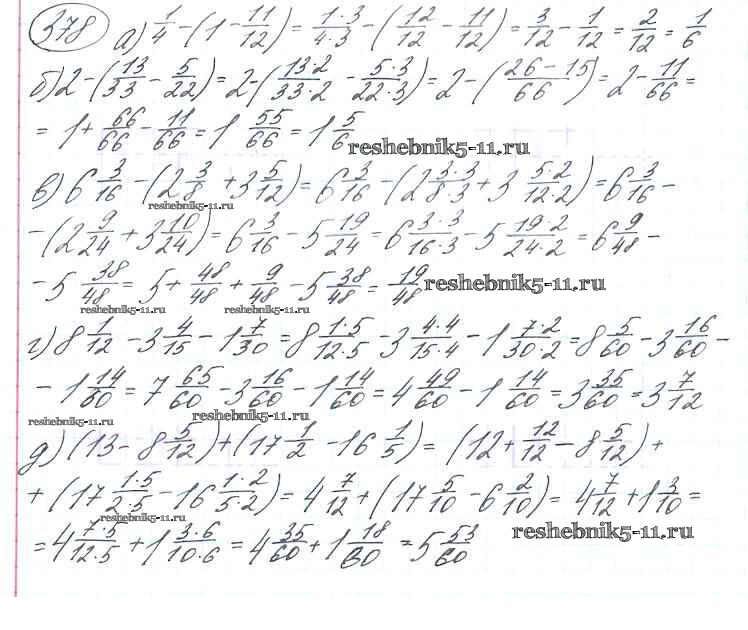 378 а) 1/4 - (1 - 11/12) = 1·3/4·3 - (12/12 - 11/12) = 3/12 - 1/12 = 2/12 = 1/6
б) 2 - (13/33 - 5/22) = 2 - (13·2/33·2 - 5·3/22·3) = 2 - (26-15/66) = 2 - 11/66 =
= 1 + 66/66 - 11/66 = 1 55/66 = 1 5/6
reshebnik5-11.ru
в) 6 3/16 - (2 3/8 + 3 5/12) = 6 3/16 - (2 3·3/8·3 + 3 5·2/12·2) = 6 3/16 -
reshebnik5-11.ru
- (2 9/24 + 3 10/24) = 6 3/16 - 5 19/24 = 6 3·3/16·3 - 5 19·2/24·2 = 6 9/48 -
- 5 38/48 = 5 + 48/48 + 9/48 - 5 38/48 = 19/48
reshebnik5-11.ru
reshebnik5-11.ru
г) 8 1/12 - 3 4/15 - 1 7/30 = 8 1·5/12·5 - 3 4·4/15·4 - 1 7·2/30·2 = 8 5/60 - 3 16/60 -
- 1 14/60 = 7 65/60 - 3 16/60 - 1 14/60 = 4 49/60 - 1 14/60 = 3 35/60 = 3 7/12
reshebnik5-11.ru
reshebnik5-11.ru
д) (13 - 8 5/12) + (17 1/2 - 16 1/5) = (12 + 12/12 - 8 5/12) +
+ (17 1·5/2·5 - 16 1·2/5·2) = 4 7/12 + (17 5/10 - 6 2/10) = 4 7/12 + 1 3/10 =
reshebnik5-11.ru
= 4 7·5/12·5 + 1 3·6/10·6 = 4 35/60 + 1 18/60 = 5 53/60
reshebnik5-11.ru